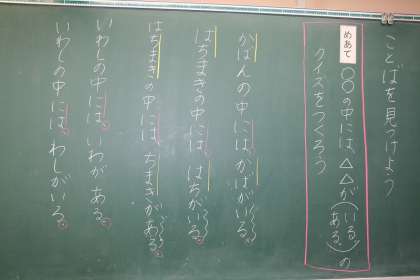 ことばを見つけよう
めあて
○○の中には、△△が(いる。ある。)の
クイズをつくろう
かばんの中には、かばがいる。
はちまきの中には、はちがいる。
はちまきの中には、ちまきがある。
いわしの中には、いわがある。
いわしの中には、わしがいる。